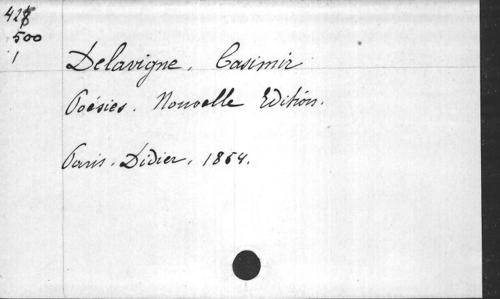 428
500
1
Delavigne, Casimir
Poésies. Nouvelle Edition.
Paris. Didier, 1854.